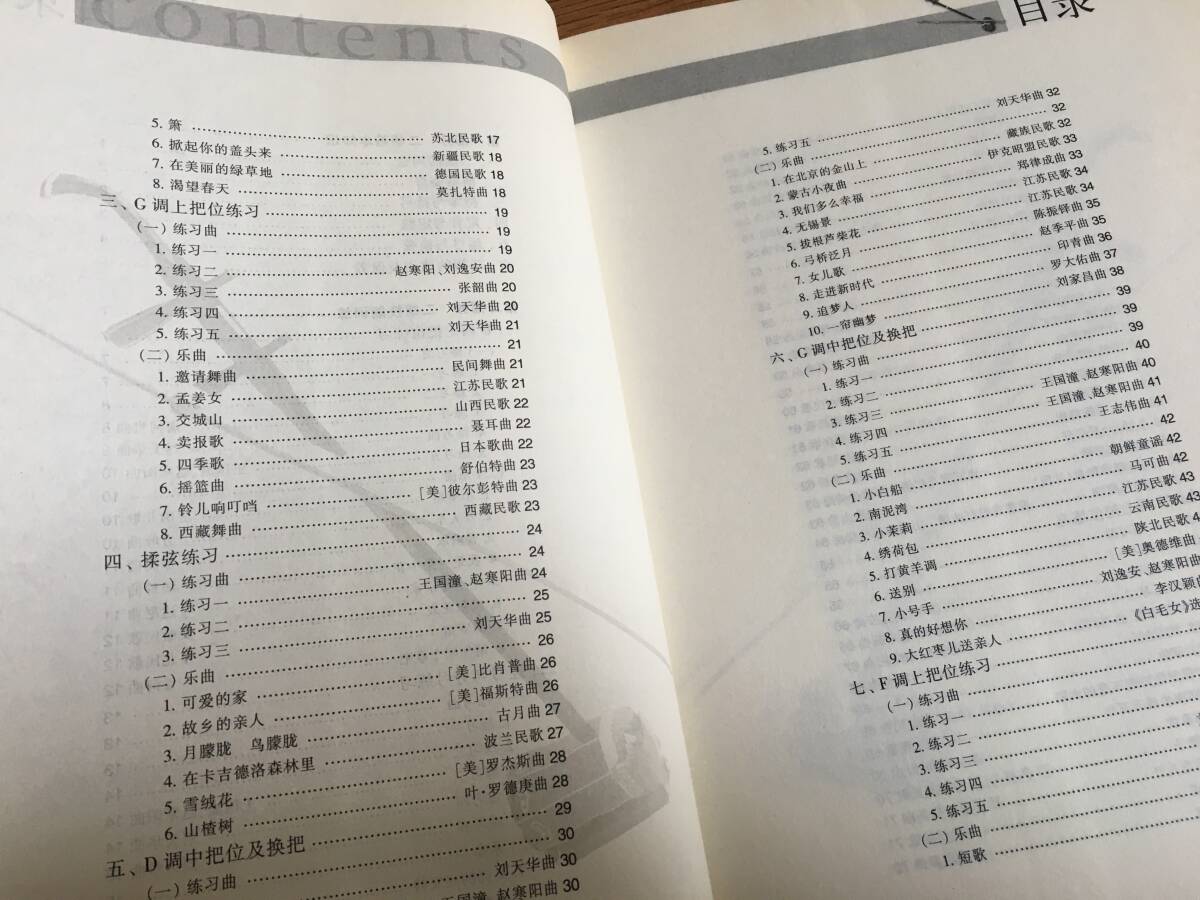 contents
5. 箫 …… 苏北民歌 17
6. 掀起你的盖头来 …… 新疆民歌 18
7. 在美丽的绿草地 …… 德国民歌 18
8. 渴望春天 …… 莫扎特曲 18
三、G 调上把位练习 …… 19
(一) 练习曲 …… 19
1. 练习一 …… 19
2. 练习二 …… 赵寒阳、刘逸安曲 20
3. 练习三 …… 张韶曲 20
4. 练习四 …… 刘天华曲 20
5. 练习五 …… 刘天华曲 21
(二) 乐曲 …… 21
1. 邀请舞曲 …… 民间舞曲 21
2. 孟姜女 …… 江苏民歌 21
3. 交城山 …… 山西民歌 22
4. 卖报歌 …… 聂耳曲 22
5. 四季歌 …… 日本歌曲 22
6. 摇篮曲 …… 舒伯特曲 23
7. 铃儿响叮当 …… [美]彼尔彭特曲 23
8. 西藏舞曲 …… 西藏民歌 23
四、揉弦练习 …… 24
(一) 练习曲 …… 24
1. 练习一 …… 王国潼、赵寒阳曲 24
2. 练习二 …… 25
3. 练习三 …… 刘天华曲 25
(二) 乐曲 …… 26
1. 可爱的家 …… [美]比肖普曲 26
2. 故乡的亲人 …… [美]福斯特曲 26
3. 月朦胧 鸟朦胧 …… 古月曲 27
4. 在卡吉德洛森林里 …… 波兰民歌 27
5. 雪绒花 …… [美]罗杰斯曲 28
6. 山楂树 …… 叶·罗德庚曲 28
五、D 调中把位及换把 …… 29
(一) 练习曲 …… 30
刘天华曲 30
王国潼、赵寒阳曲 30
目录
刘天华曲 32
5. 练习五 …… 32
(二) 乐曲 …… 藏族民歌 32
1. 在北京的金山上 …… 伊克昭盟民歌 33
2. 蒙古小夜曲 …… 郑律成曲 33
3. 我们多么幸福 …… 江苏民歌 34
4. 无锡景 …… 江苏民歌 34
5. 拔根芦柴花 …… 陈振铎曲 35
6. 弓桥泛月 …… 赵季平曲 35
7. 女儿歌 …… 印青曲 36
8. 走进新时代 …… 罗大佑曲 37
9. 追梦人 …… 刘家昌曲 38
10. 一帘幽梦 …… 39
六、G 调中把位及换把 …… 39
(一) 练习曲 …… 40
1. 练习一 …… 王国潼、赵寒阳曲 40
2. 练习二 …… 王国潼、赵寒阳曲 41
3. 练习三 …… 王志伟曲 41
4. 练习四 …… 42
5. 练习五 …… 朝鲜童谣 42
(二) 乐曲 …… 马可曲 42
1. 小白船 …… 江苏民歌 43
2. 南泥湾 …… 云南民歌 43
3. 小茉莉 …… 陕北民歌 4
4. 绣荷包 …… [美]奥德维曲
5. 打黄羊调 …… 刘逸安、赵寒阳曲
6. 送别 …… 李汉颖曲
7. 小号手 …… 《白毛女》选
8. 真的好想你
9. 大红枣儿送亲人
七、F 调上把位练习
(一) 练习曲
1. 练习一
2. 练习二
3. 练习三
4. 练习四
5. 练习五
(二) 乐曲
1. 短歌